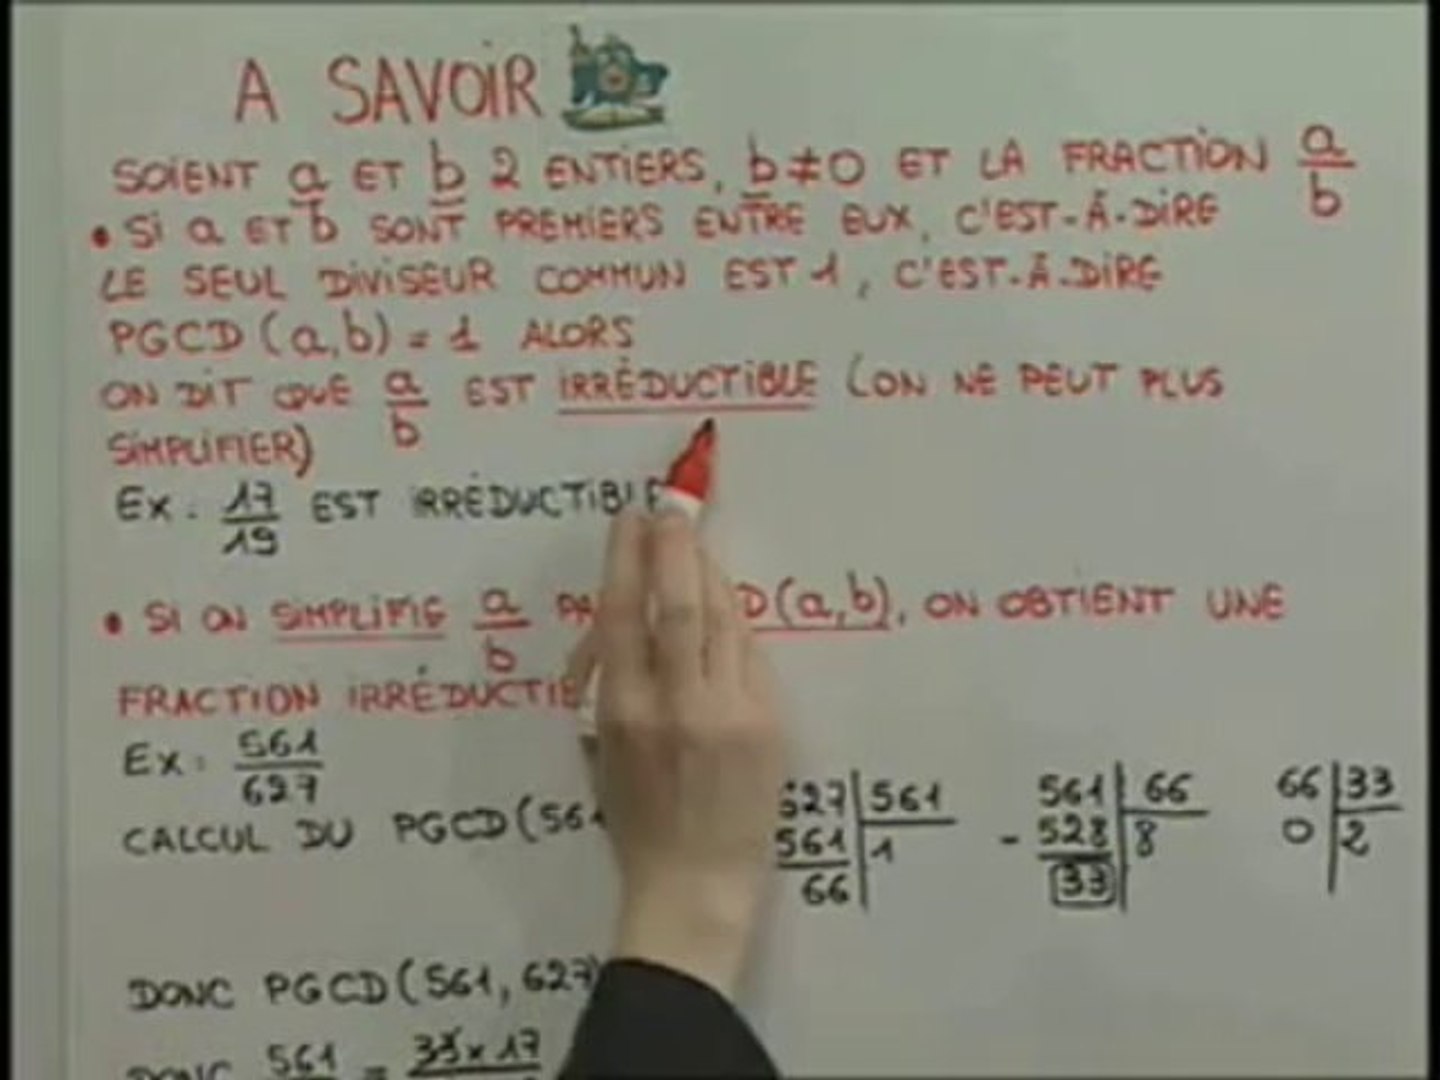 A SAVOIR
SOIENT a ET b 2 ENTIERS, b ≠ 0 ET LA FRACTION a/b
• SI a ET b SONT PREMIERS ENTRE EUX, C'EST-À-DIRE
LE SEUL DIVISEUR COMMUN EST 1, C'EST-À-DIRE
PGCD (a,b) = 1 ALORS
ON DIT QUE a/b EST IRRÉDUCTIBLE (ON NE PEUT PLUS
SIMPLIFIER)
EX : 17/19 EST IRRÉDUCTIBLE
• SI ON SIMPLIFIE a/b D(a,b), ON OBTIENT UNE
FRACTION IRRÉDUCTIB
EX : 561/627
CALCUL DU PGCD (561
627 | 561
561 | 1
66
561 | 66
- 528 | 8
33
66 | 33
0 | 2
DONC PGCD (561, 627)
DONC 561 = 33 x 17